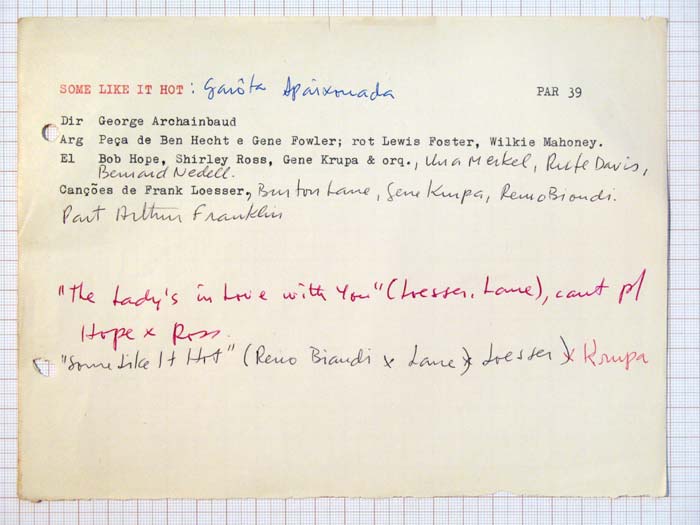 SOME LIKE IT HOT : Garôta Apaixonada PAR 39
Dir George Archainbaud
Arg Peça de Ben Hecht e Gene Fowler; rot Lewis Foster, Wilkie Mahoney.
El Bob Hope, Shirley Ross, Gene Krupa & orq., Una Merkel, Rufe Davis,
Bernard Nedell.
Canções de Frank Loesser, Burton Lane, Gene Krupa, Remo Biondi.
Part Arthur Franklin
"The Lady's in Love with You" (Loesser, Lane), cant p/
Hope x Ross.
"Some Like It Hot" (Remo Biandi x Lane x Loesser) x Krupa